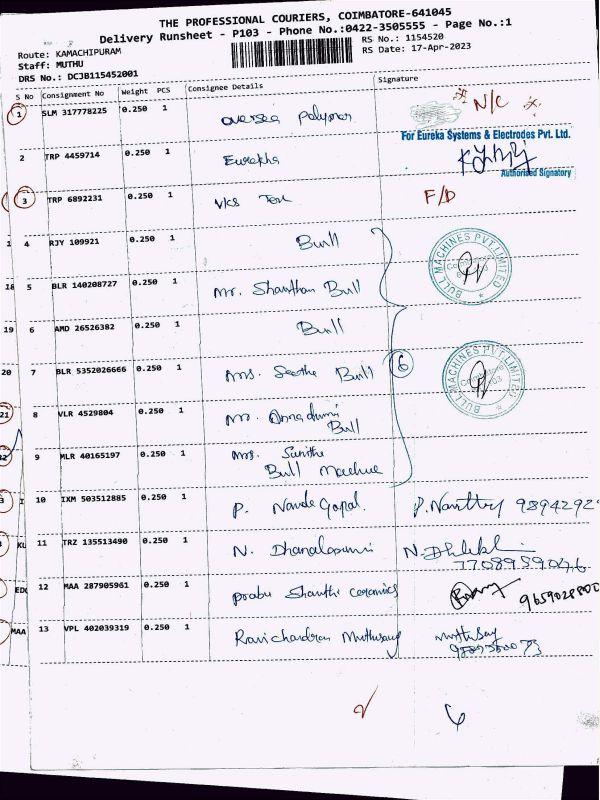 THE PROFESSIONAL COURIERS, COIMBATORE-641045
Delivery Runsheet - P103 - Phone No.:0422-3505555 - Page No.:1
Route: KAMACHIPURAM
RS No.: 1154520
Staff: MUTHU
RS Date: 17-Apr-2023
DRS No.: DCJB115452001
S No Consignment No Weight PCS Consignee Details Signature
1 SLM 317778225 0.250 1 oversea polymer N/C
For Eureka Systems & Electrodes Pvt. Ltd.
2 TRP 4459714 0.250 1 Eurekha
Authorised Signatory
3 TRP 6892231 0.250 1 VKS Tex F/D
4 RJY 109921 0.250 1 Bull
BULL MACHINES PVT.LIMITED
5 BLR 140208727 0.250 1 Mr. Shanthan Bull
6 AMD 26526382 0.250 1 Bull
7 BLR 5352026666 0.250 1 Mrs. Seetha Bull 6
BULL MACHINES PVT.LIMITED
8 VLR 4529804 0.250 1 Mr. Bull
9 MLR 40165197 0.250 1 Mrs. Sunitha
Bull Machine
10 IXM 503512885 0.250 1 P. Nanda Gopal.
11 TRZ 135513490 0.250 1 N. Dhanalaxmi
7708959046
12 MAA 287905961 0.250 1 prabu Shanthi ceramics
9659028800
13 VPL 402039319 0.250 1 Ravichandran Muthusamy
18
19
20
21
MAA